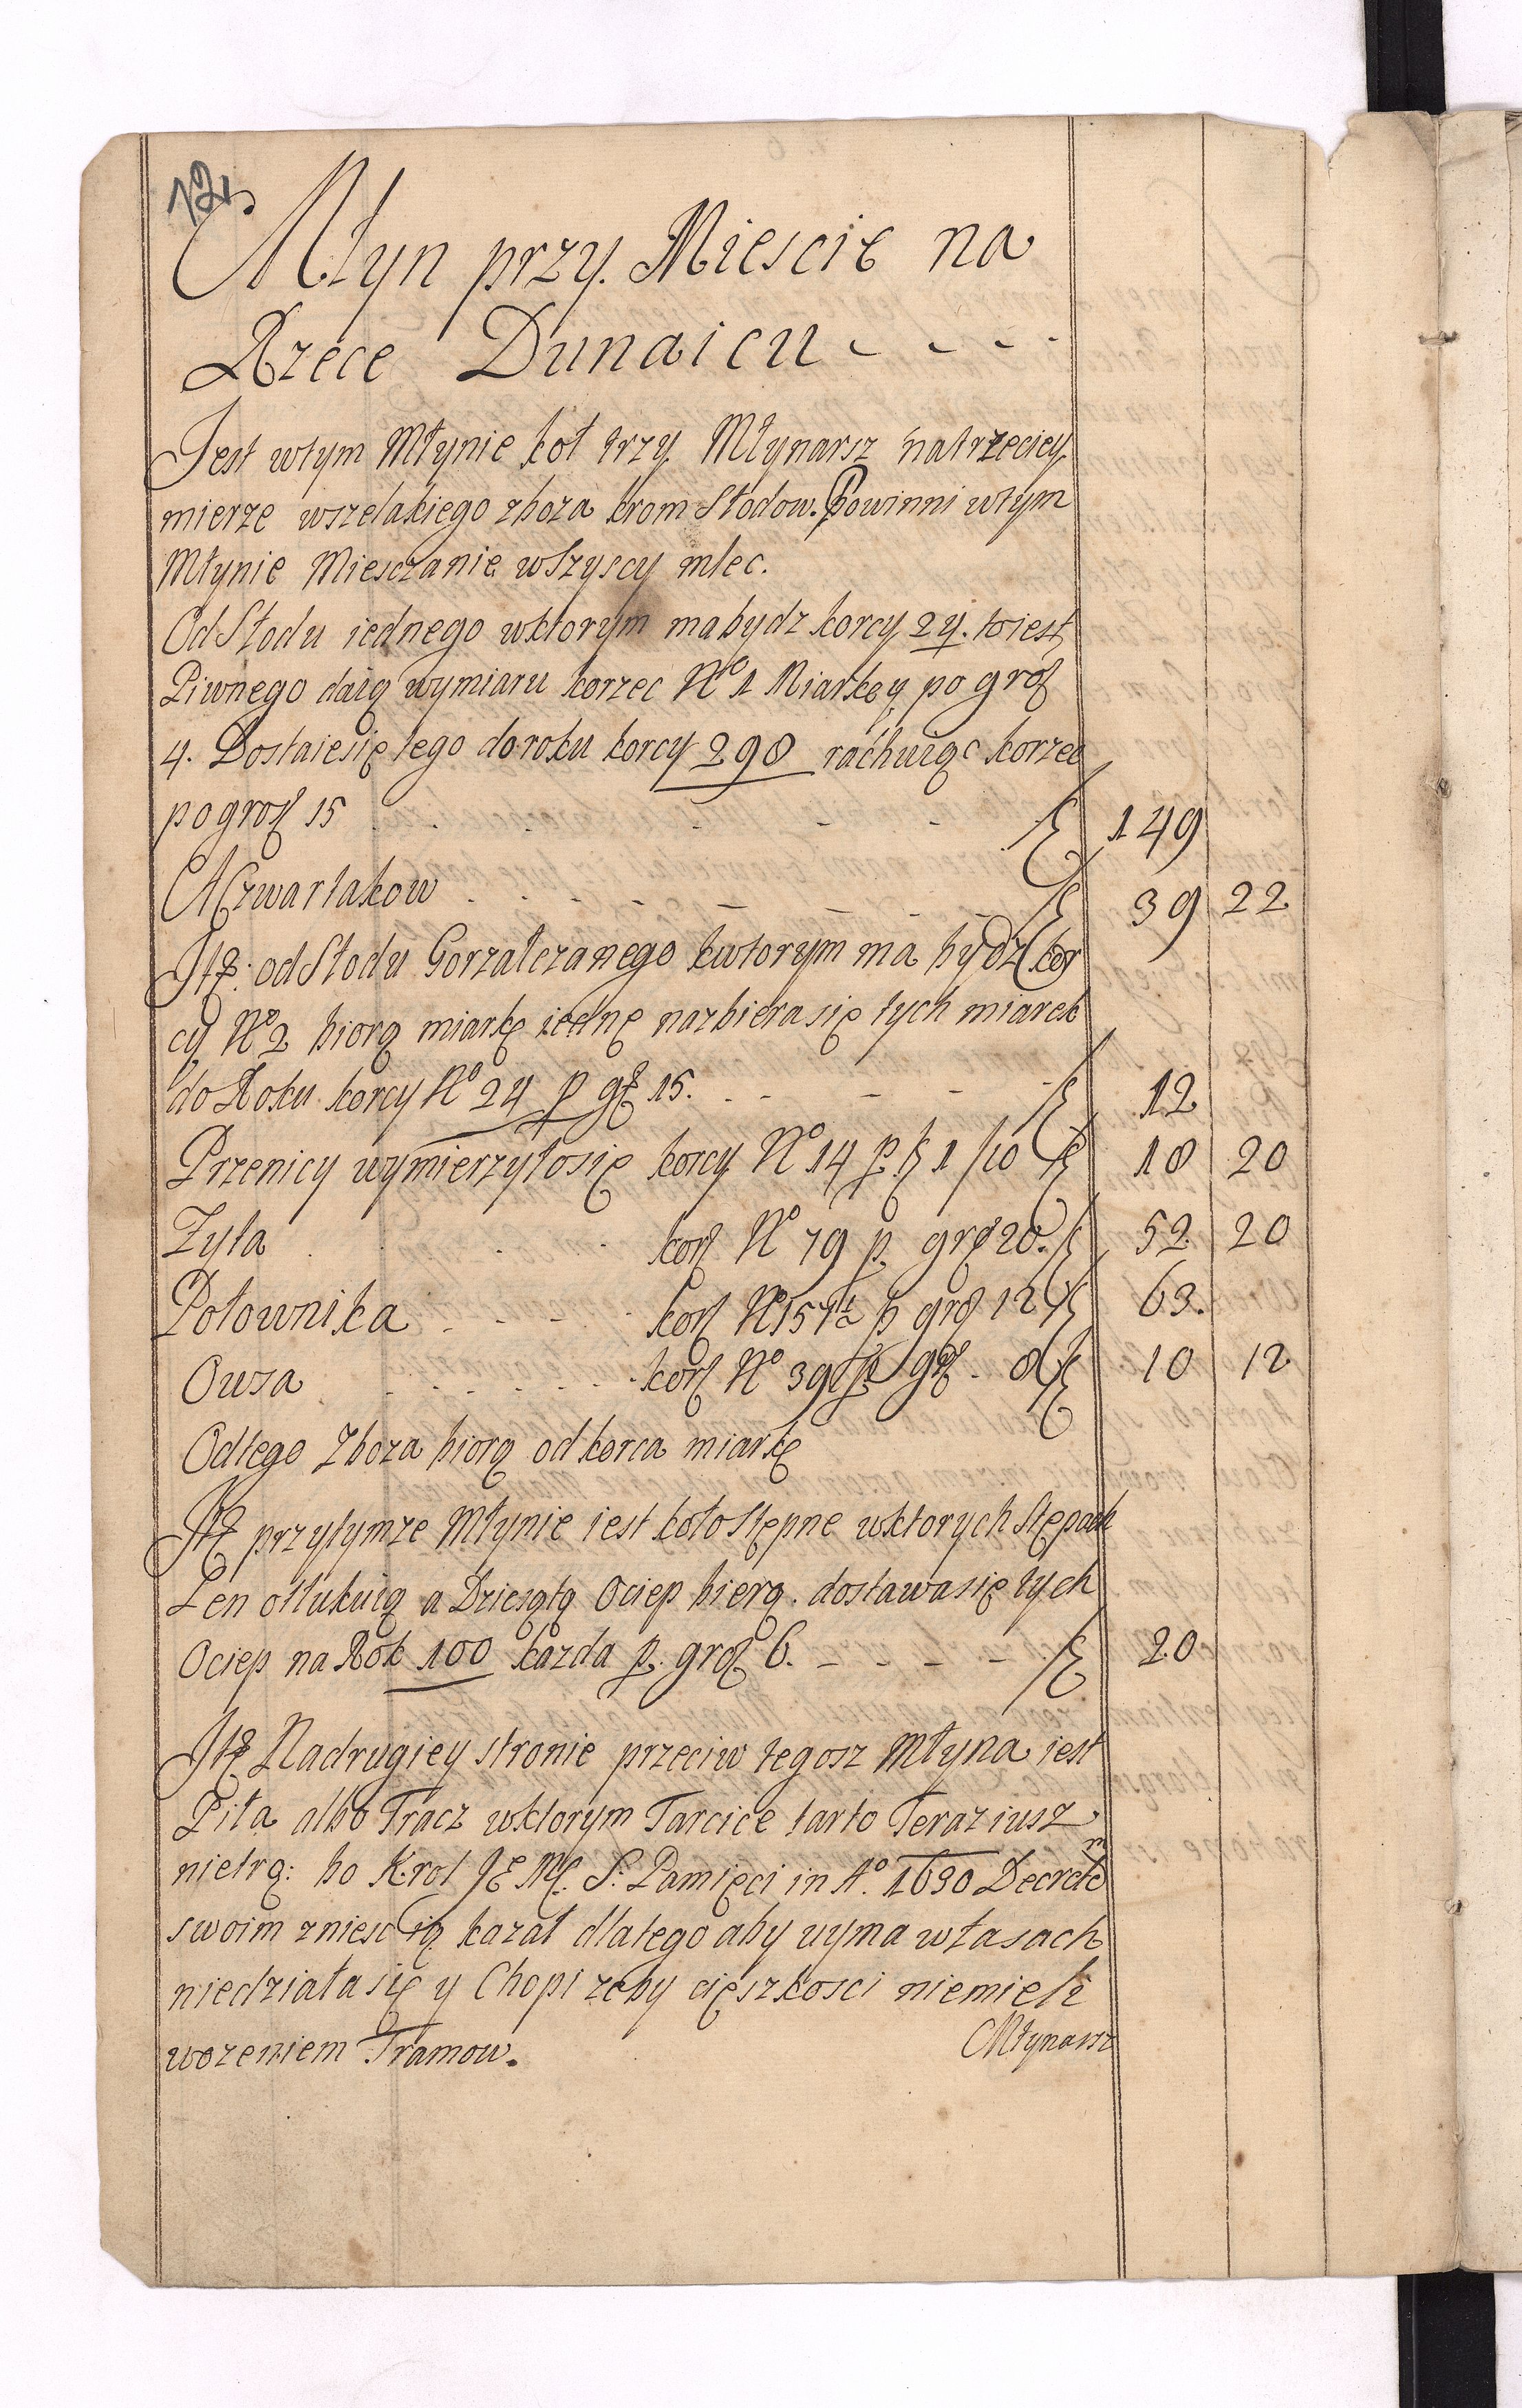 12
Młyn przy Miescie na
Rzece Dunaicu - - - -
Jest wtym Młynie koł trzy Młynarsz natrzeciey
mierze wszelakiego zboza krom Słodow. Powinni wtym
Młynie Miesczanie wszyscy mlec.
Od Słodu iednego wktorym mabydz korcy 24. toiest
Piwnego daią wymiaru korzec No 1 Miarkę y po gros
4. Dostaiesię tego do roku korcy 298 rachuiąc korzec
po gros 15 - - - - - f 149
A Czwartakow - - - - - f 39 22
Itę. od Słodu Gorzałczanego kwtorym ma bydz kor
cy No 2 biorą miarkę iednę nazbiera się tych miarek
do Roku korcy No 24 p gr 15. - - - f 12
Przenicy wymierzyłosię korcy No 14 p. f 1/10 f 18 20
Zyta - - - kor No 79 p. gro 20. f 52 20
Połownika - - - kor No 157½ p gro 12 f 63.
Owsa - - - kor No 39 p gr. 8 f 10 12
Odtego Zboza biorą od korca miarkę
Itę przytymze Młynie iest koło stępne wktorych stępach
Len otłukuią a Dziesątą Ociep bierą. dostawa się tych
Ociep na Rok 100 kazda p. gro 6. - - - - f 20
Itę. Nadrugiey stronie przeciw tegosz Młyna iest
Piła albo Tracz wktorym Tarcice tarto Teraz iusz
nietrą: bo Krol JE Mć. S: Pamięci in Ao. 1630 Decretem
swoim zniesc ią kazał dlatego aby uyma wlasach
niedziała się y Chopi zeby cięszkosci niemieli
wozeniem Tramow.
Młynarsz